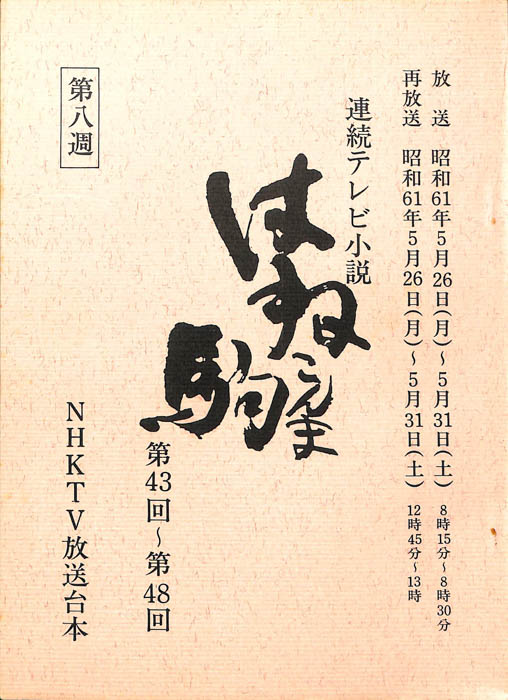 放　送　昭和61年5月26日(月)～5月31日(土)　8時15分～8時30分
再放送　昭和61年5月26日(月)～5月31日(土)　12時45分～13時
連続テレビ小説
はね駒
こんま
第43回～第48回
第八週
NHKTV放送台本